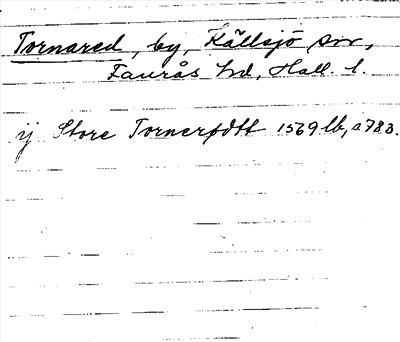 Tornared, by, Källsjö sn,
Faurås hd, Hall. l.
ij Store Tornerødtt 1569 lb, a 783.